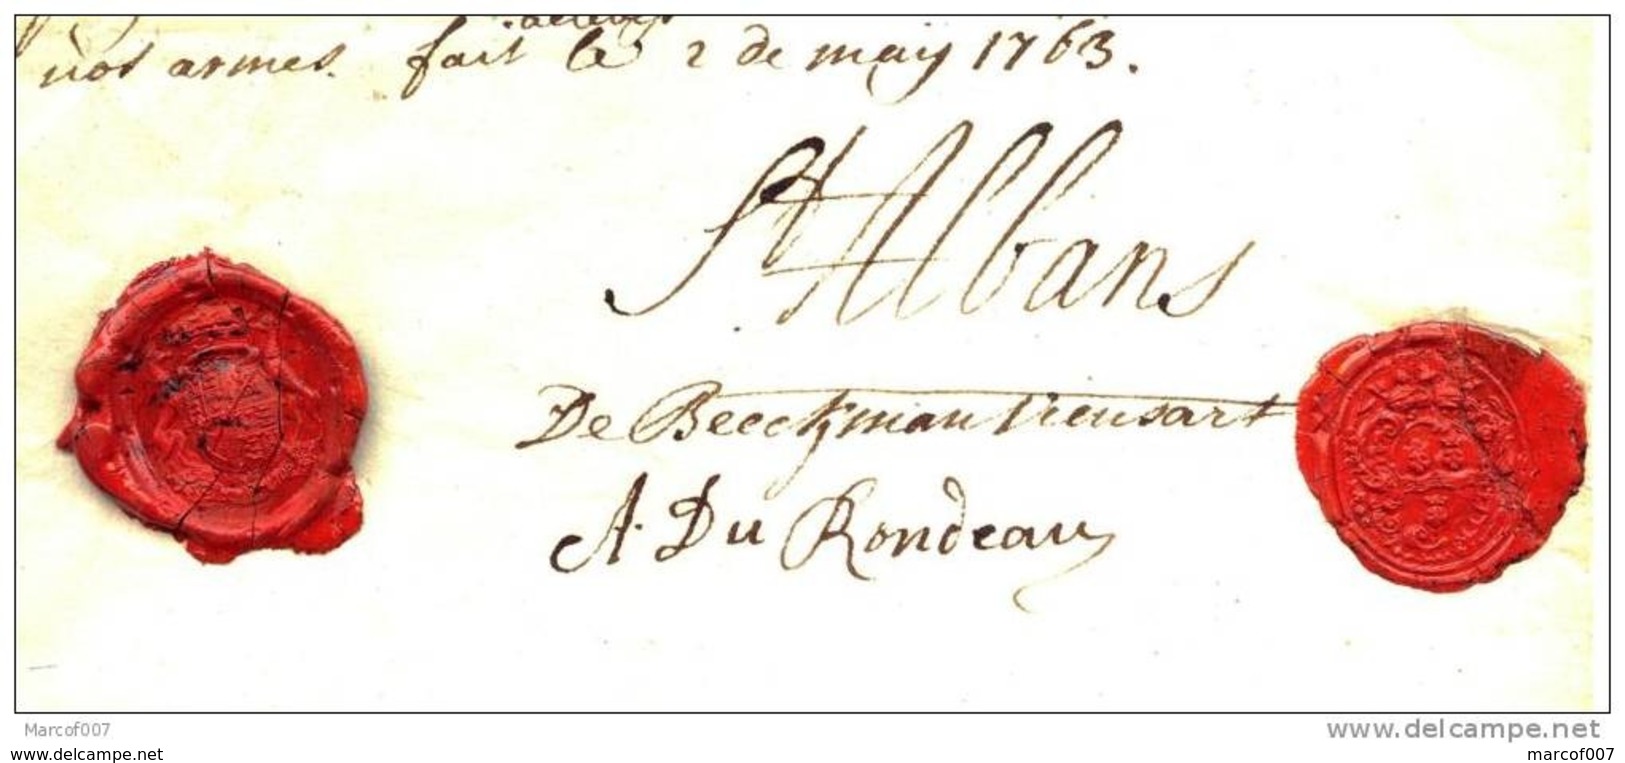 nos armes. fait le 2 de may 1763.
St Albans
De Beeckman Vieusart
A. Du Rondeau
Marcof007
www.delcampe.net
www.delcampe.net
marcof007